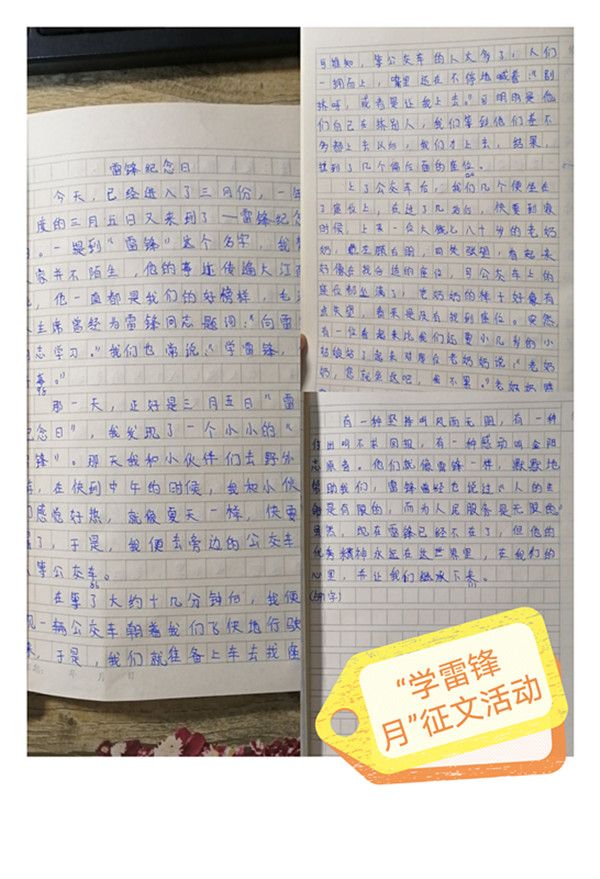 雷锋纪念日
今天,已经进入了三月份,一年
度的三月五日又来到了—雷锋纪念
。一提到“雷锋”这个名字,我
家并不陌生,他的事迹传遍大江
,他一直都是我们的好榜样,毛
主席曾经为雷锋同志题词:“向雷
同志学习。”我们也常说:“学雷锋,
好事。”
那一天,正好是三月五日“雷
纪念日”,我发现了一个小小的“
锋”。那天我和小伙伴们去野外
,在快到中午的时候,我和小伙
们感觉好热,就像夏天一样,快要
了,于是,我便去旁边的公交车
等公交车。
在等了大约十几分钟后,我便
见一辆公交车朝着我们飞快地行驶
来,于是,我们就准备上车去找座
可谁知,等公交车的人太多了,人们
一拥而上,嘴里还在不停地喊着:“别
挤呀,或者是让我上去。”可明明是他
们自己在挤别人,我们等到他们差不
多都上去以后,我们才上去,结果,
找到了几个偏后面的座位。
上了公交车后,我们几个便坐在
了座位上,在过了几站后,快要到家
时候,上来一位大概七八十岁的老奶
奶,她左顾右盼,四处张望,看起来
好像在找合适的座位,可公交车上的
座位都坐满了,老奶奶的样子好像有
点失望,看来是没有找到座位。突然,
有一位看起来比我们还要小几岁的小
姑娘站了起来对那位老奶奶说:“老奶
奶,您就坐这吧,我不累。”老奶奶
有一种坚持叫风雨无阻,有一种
付出叫不求回报,有一种感动叫金阳
志愿者。他们就像雷锋一样,默默地
帮助我们,雷锋曾经也说过:“人的生
命是有限的,而为人民服务是无限的。”
虽然,现在雷锋已经不在了,但他的
优秀精神永远在这世界里,在我们的
心里,并让我们继承下来。
“学雷锋
月”征文活动